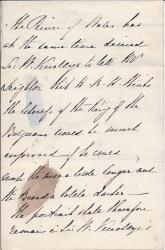 The Prince of Wales has
at the same time desired
Sir W. Knollys to tell Mr
that H. R. H. thinks
the likeness of the King of the
Belgians would be much
improved if he could
make the nose a little longer and
the Beard a little darker —
The portrait shall therefore
remain in Sir W. Knollys's